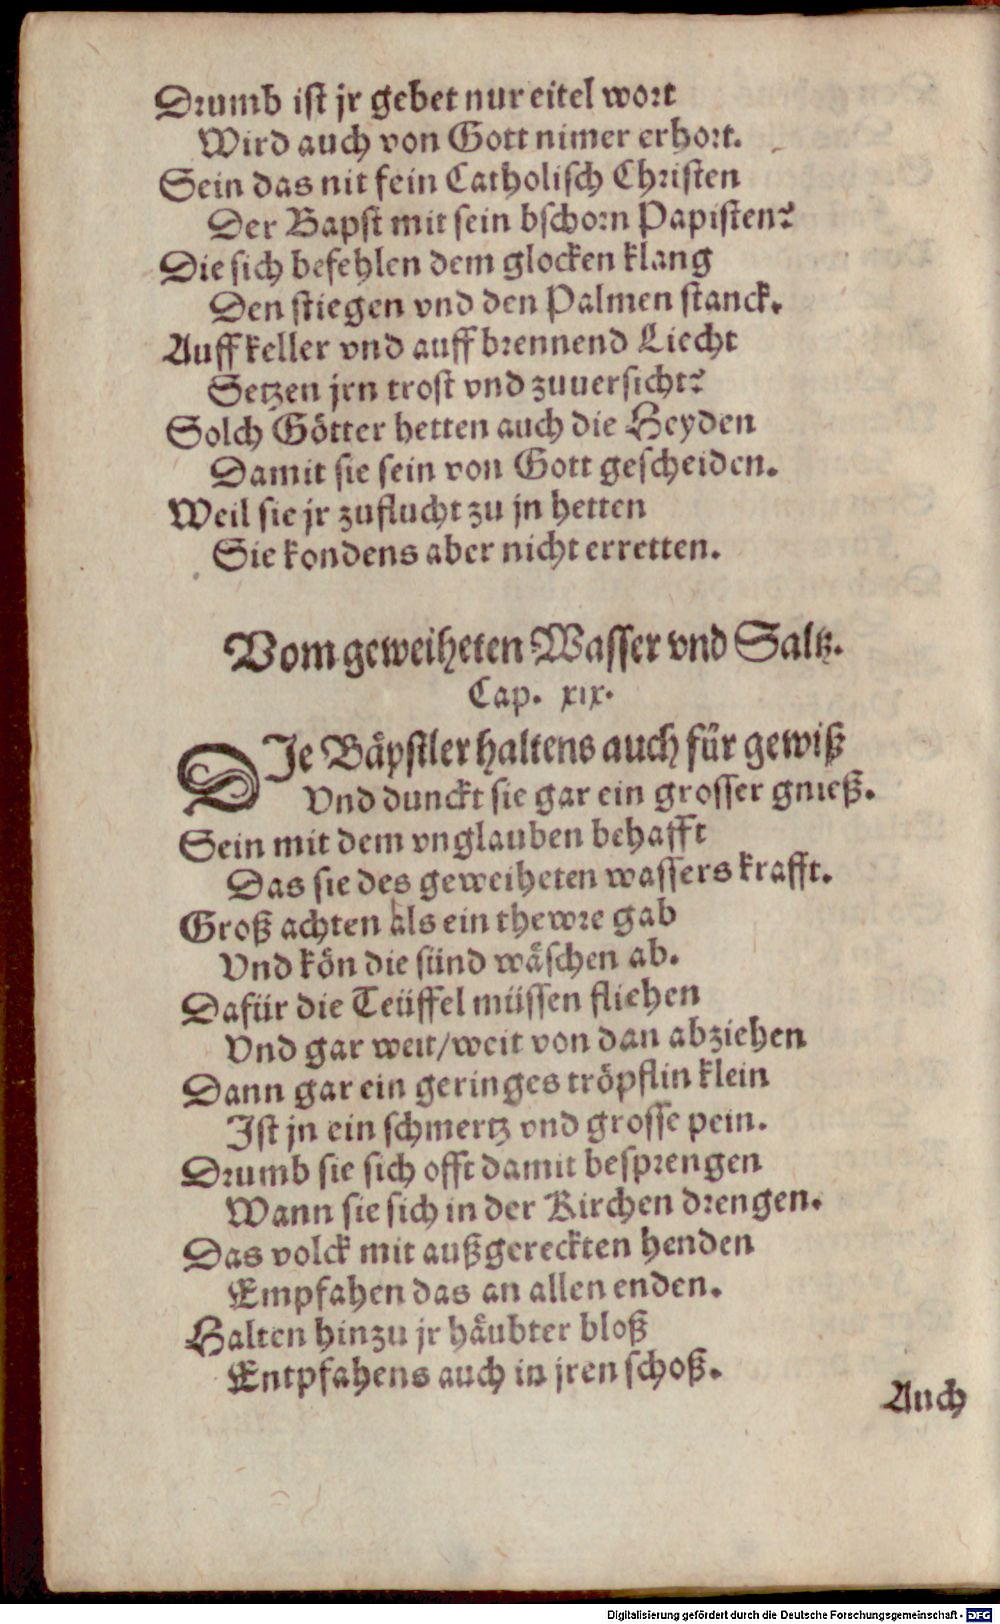 Drumb ist jr gebet nur eitel wort
Wird auch von Gott nimer erhort.
Sein das nit fein Catholisch Christen
Der Bapst mit sein bschorn Papisten?
Die sich befehlen dem glocken klang
Den stiegen vnd den Palmen stanck.
Auff keller vnd auff brennend Liecht
Setzen jrn trost vnd zuuersicht?
Solch Götter hetten auch die Heyden
Damit sie sein von Gott gescheiden.
Weil sie jr zuflucht zu jn hetten
Sie kondens aber nicht erretten.
Vom geweiheten Wasser vnd Saltz.
Cap. xix.
DIe Bäpstler haltens auch für gewiß
Vnd dunckt sie gar ein grosser gnieß.
Sein mit dem vnglauben behafft
Das sie des geweiheten wassers krafft.
Groß achten als ein thewre gab
Vnd kön die sünd wäschen ab.
Dafür die Teüffel müssen fliehen
Vnd gar weit/weit von dan abziehen
Dann gar ein geringes tröpflin klein
Ist jn ein schmertz vnd grosse pein.
Drumb sie sich offt damit besprengen
Wann sie sich in der Kirchen drengen.
Das volck mit außgereckten henden
Empfahen das an allen enden.
Halten hinzu jr häubter bloß
Entpfahens auch in jren schoß.
Auch
Digitalisierung gefördert durch die Deutsche Forschungsgemeinschaft - DFG